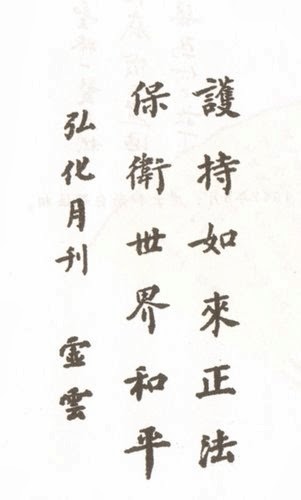 護持如來正法
保衛世界和平
弘化月刊 虛雲